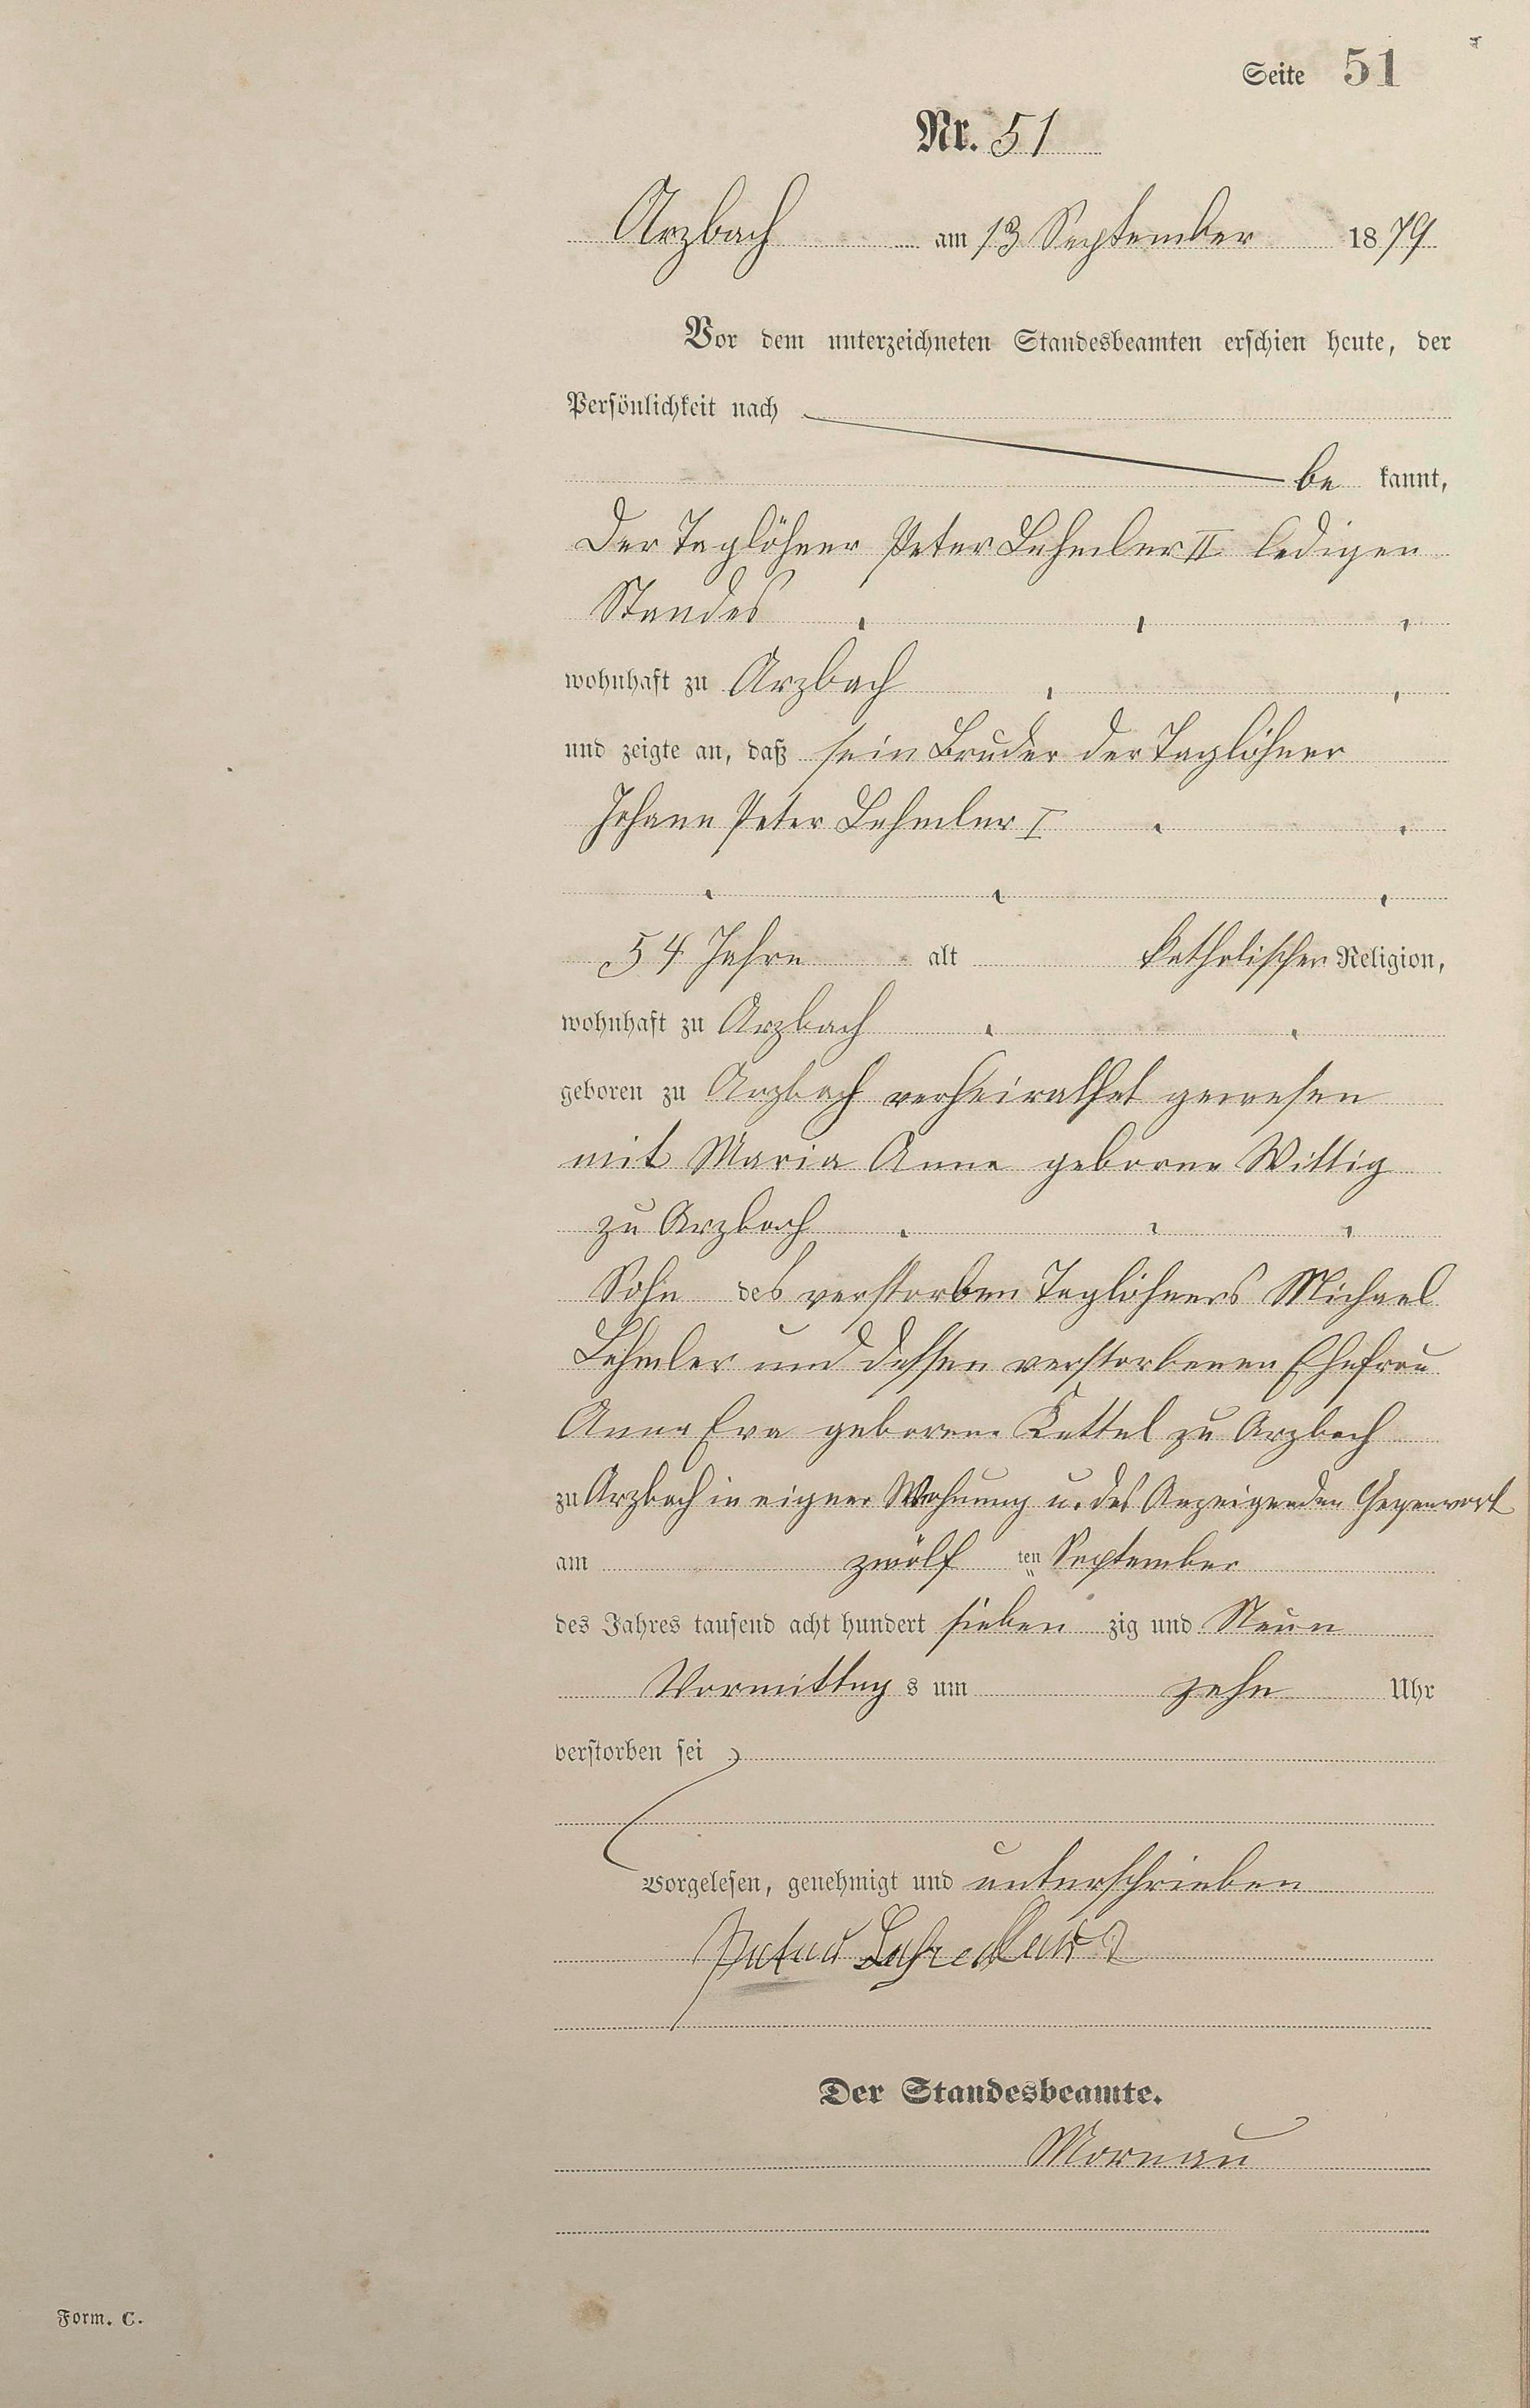 Seite 51
Nr. 51
Arzbach am 13 September 1879
Vor dem unterzeichneten Standesbeamten erschien heute, der
Persönlichkeit nach
be kannt,
der Taglöhner Peter Lehmler II ledigen
Standes
wohnhaft zu Arzbach
und zeigte an, daß sein Bruder der Taglöhner
Johann Peter Lehmler I
54 Jahre alt katholischer Religion,
wohnhaft zu Arzbach
geboren zu Arzbach verheirathet gewesen
mit Maria Anna geborne Wittig
zu Arzbach
Sohn des verstorben Taglöhners Michael
Lehmler und dessen verstorbenen Ehefrau
Anna Eva geborene Kettel zu Arzbach
zu Arzbach in eigner Wohnung u. des Anzeigenden Gegenwart
am zwölf ten September
des Jahres tausend acht hundert sieben zig und Neun
Vormittag s um zehn Uhr
verstorben sei
Vorgelesen, genehmigt und unterschrieben
Peter Lehmler 2
Der Standesbeamte.
Mornau
Form. C.